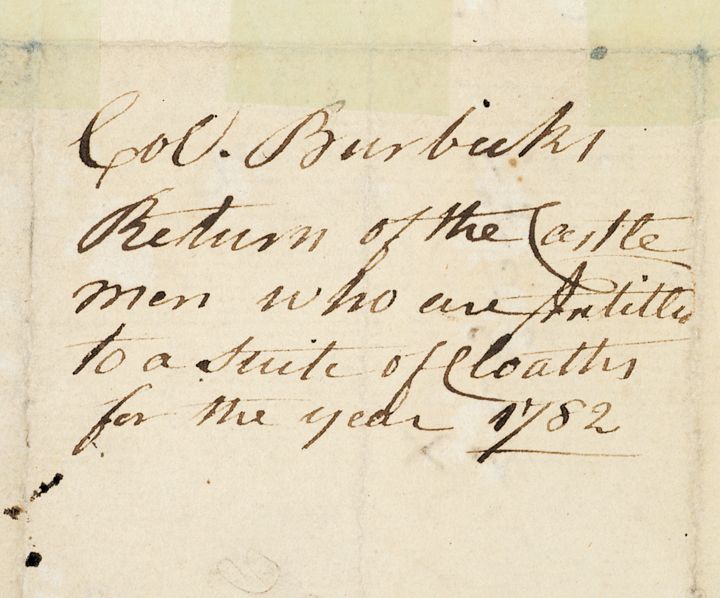 Col. Burbecks
Return of the Castle
men who are Intitled
to a Suite of Cloaths
for the year 1782